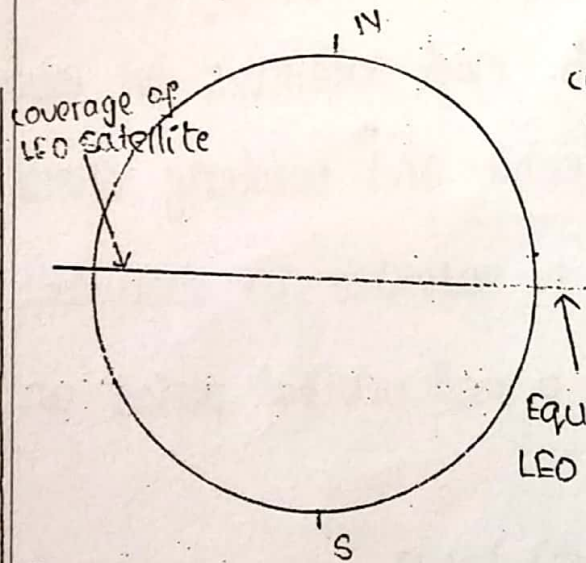 N
coverage of
LEO satellite
Equ
LEO
S